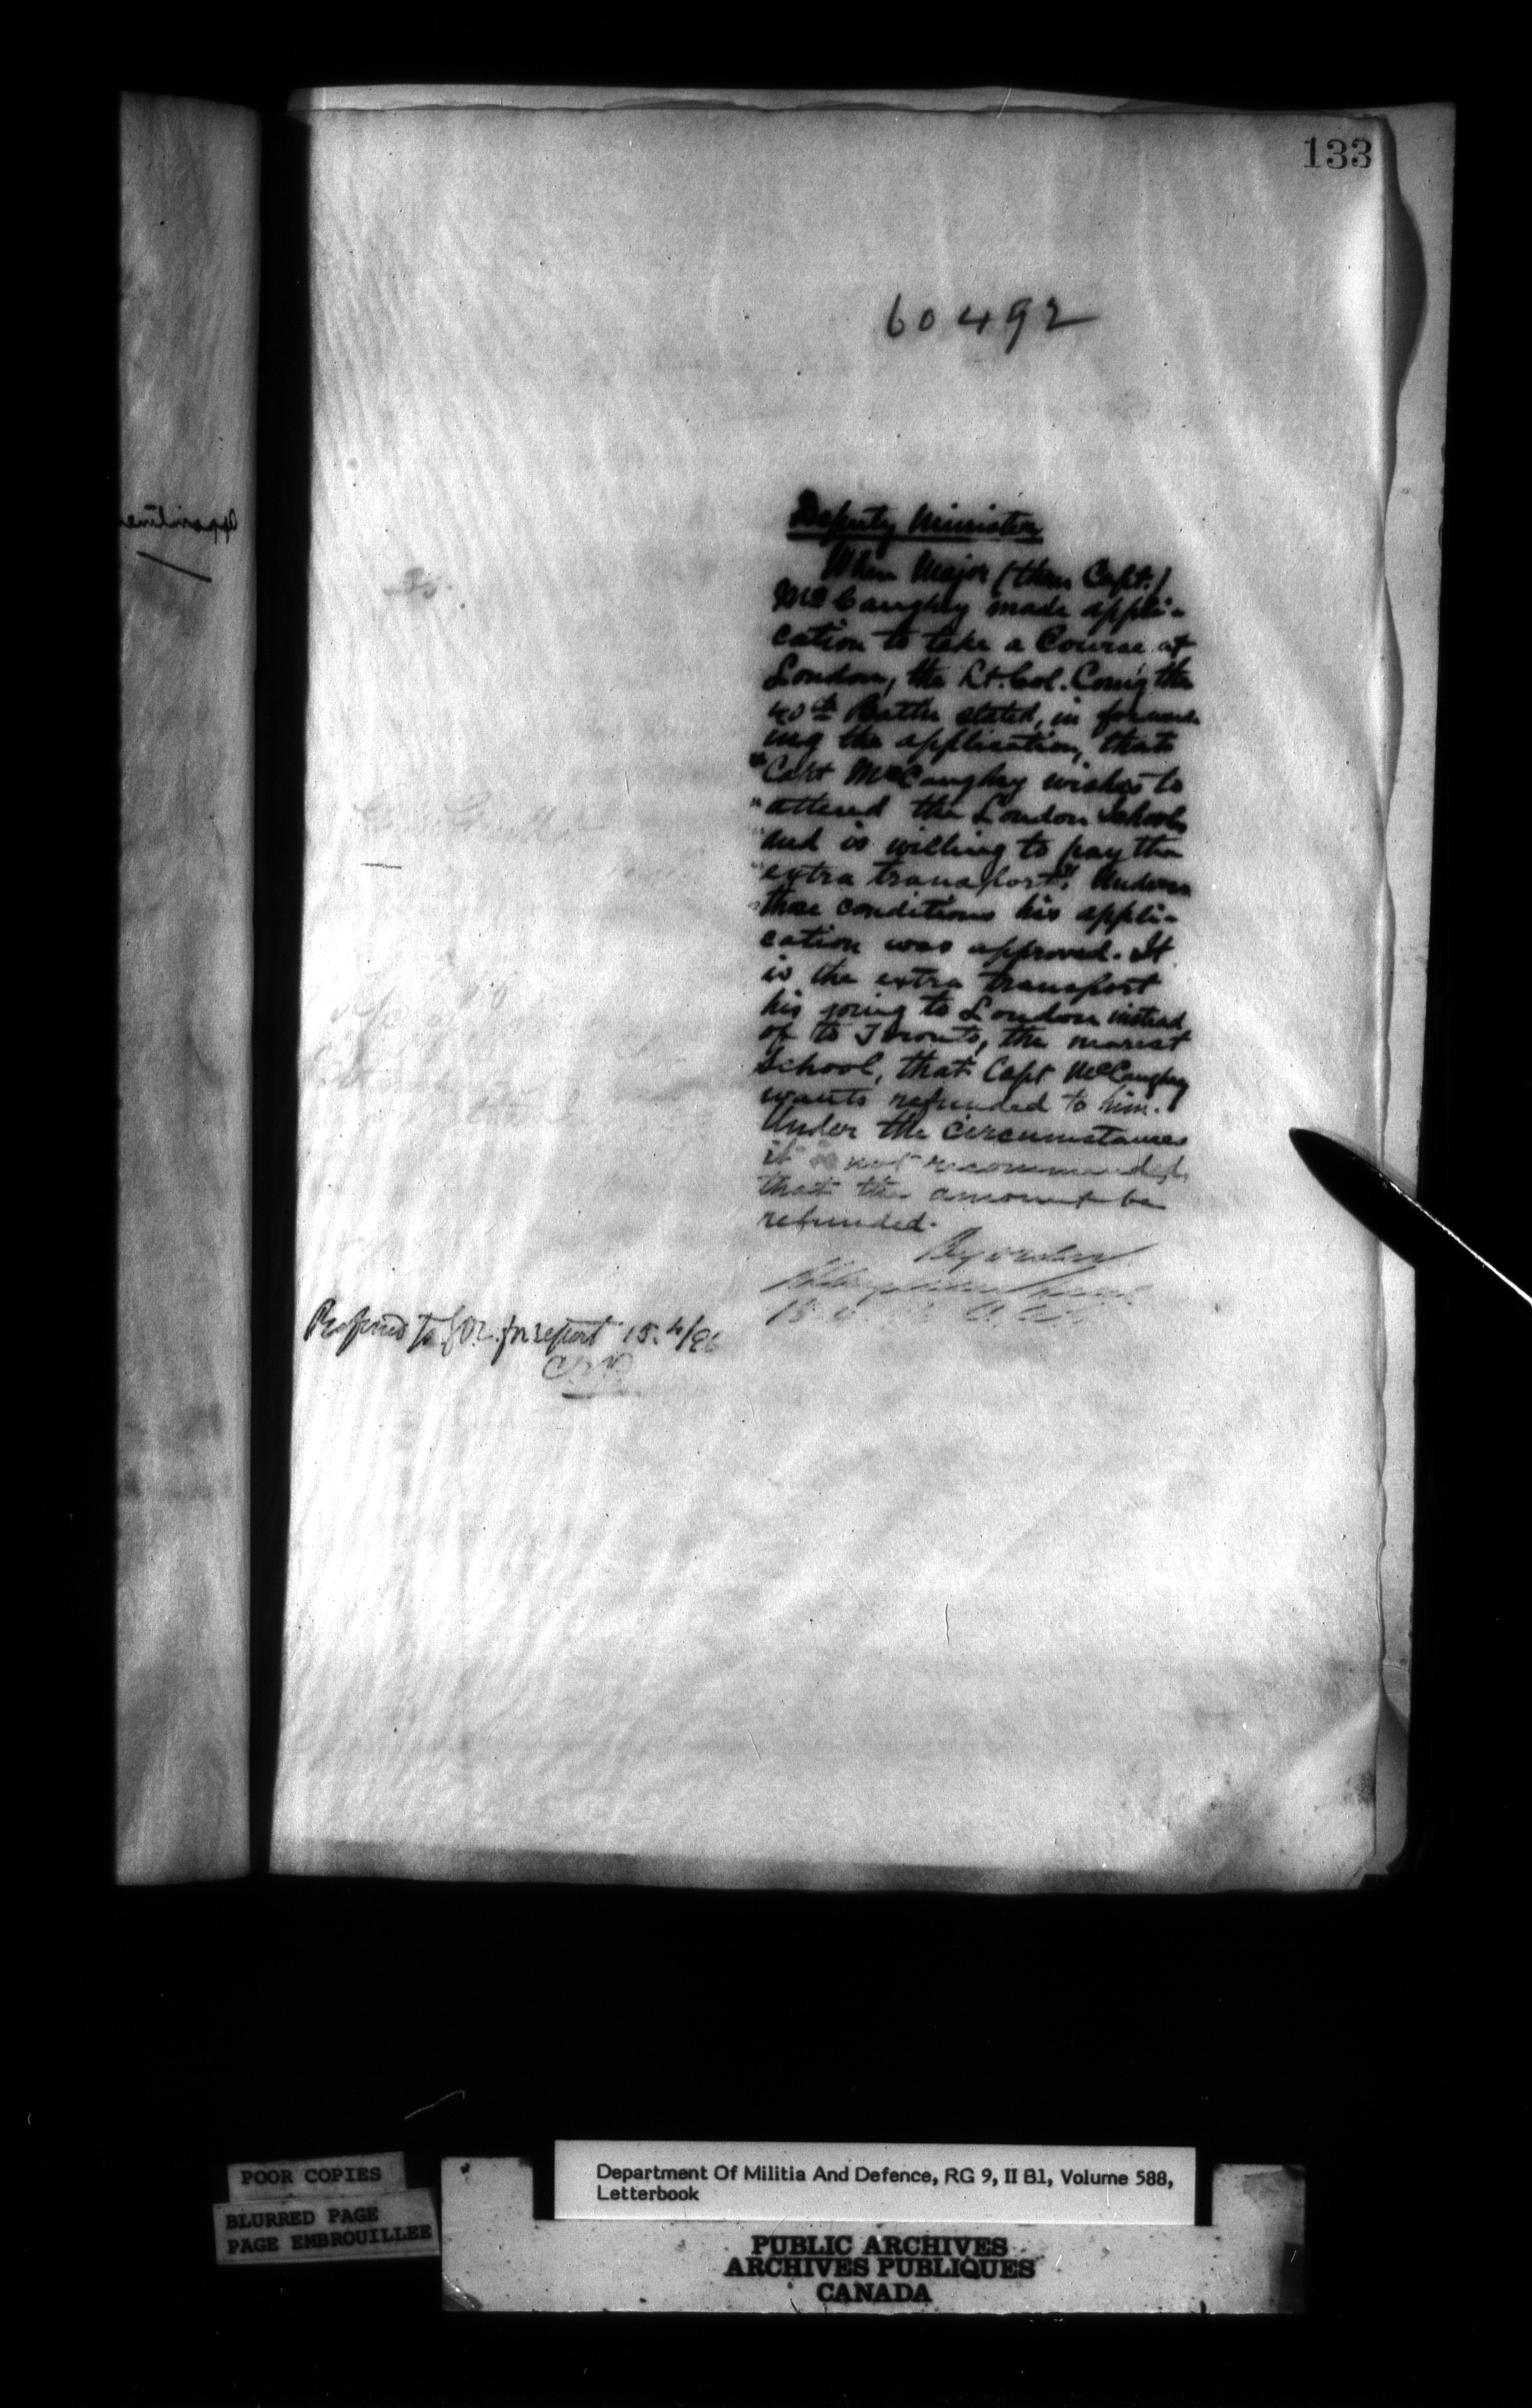 133
60492
Deputy Minister
When Major (then Capt.)
McCaughey made appli-
cation to take a Course at
London, the Lt. Col. Com'g the
40th Battn stated, in forward-
ing the application, that
"Capt McCaughey wishes to
"attend the London School
"and is willing to pay the
"extra transport". Under
those conditions his appli-
cation was approved. It
is the extra transport
his going to London instead
of to Toronto, the nearest
School, that Capt McCaughey
wants refunded to him.
Under the circumstances
it is not recommended
that the amount be
refunded.
By order
Referred to for report 15.4/96
Appointmen
POOR COPIES
BLURRED PAGE
PAGE EMBROUILLEE
Department Of Militia And Defence, RG 9, II B1, Volume 588,
Letterbook
PUBLIC ARCHIVES
ARCHIVES PUBLIQUES
CANADA